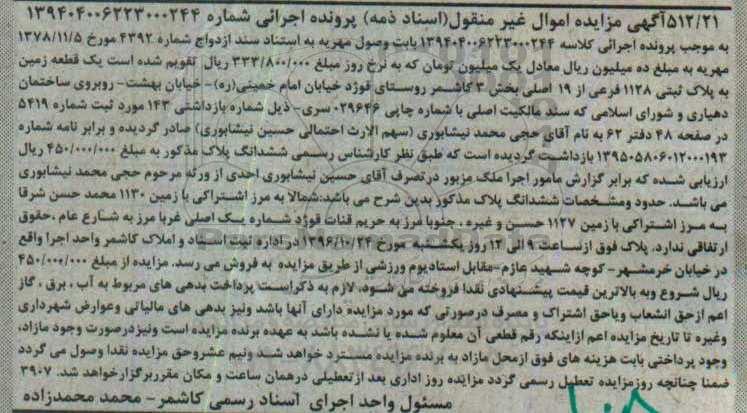 ۵۱۲/۲۱آگهی مزایده اموال غیر منقول(اسناد ذمه) پرونده اجرائی شماره ۱۳۹۴۰۴۰۰۶۲۲۳۰۰۰۲۴۴
به موجب پرونده اجرائی کلاسه ۱۳۹۴۰۴۰۰۶۲۲۳۰۰۰۲۴۴ بابت وصول مهریه به استناد سند ازدواج شماره ۴۳۹۲ مورخ ۱۳۷۸/۱۱/۵
مهریه به مبلغ ده میلیون ریال معادل یک میلیون تومان که به نرخ روز مبلغ ۳۳۳/۸۰۰/۰۰۰ ریال تقویم شده است یک قطعه زمین
به پلاک ثبتی ۱۱۲۸ فرعی از ۱۹ اصلی بخش ۳ کاشمر روستای قوژد خیابان امام خمینی(ره)- خیابان بهشت- روبروی ساختمان
دهیاری و شورای اسلامی که سند مالکیت اصلی با شماره چاپی ۰۲۹۶۴۶ سری- ذیل شماره بازداشتی ۱۴۳ مورد ثبت شماره ۵۴۱۹
در صفحه ۴۸ دفتر ۶۲ به نام آقای حجی محمد نیشابوری (سهم الارث احتمالی حسین نیشابوری) صادر گردیده و برابر نامه شماره
۱۳۹۵۰۵۸۰۶۰۱۲۰۰۰۱۹۳ بازداشت گردیده است که طبق نظر کارشناس رسمی ششدانگ پلاک مذکور به مبلغ ۴۵۰/۰۰۰/۰۰۰ ریال
ارزیابی شده که برابر گزارش مامور اجرا ملک مزبور در تصرف آقای حسین نیشابوری احدی از ورثه مرحوم حجی محمد نیشابوری
می باشد. حدود ومشخصات ششدانگ پلاک مذکور بدین شرح می باشد:شمالا به مرز اشتراکی با زمین ۱۱۳۰ محمد حسن شرقا
به مرز اشتراکی با زمین ۱۱۲۷ حسن و غیره . جنوبا مرز به حریم قنات قوژد شماره یک اصلی غربا مرز به شارع عام .حقوق
ارتفاقی ندارد. پلاک فوق ازساعت ۹ الی ۱۲ روز یکشنبه مورخ ۱۳۹۶/۱۰/۲۴ در اداره ثبت اسناد و املاک کاشمر واحد اجرا واقع
در خیابان خرمشهر- کوچه شهید عازم-مقابل استادیوم ورزشی از طریق مزایده به فروش می رسد. مزایده از مبلغ ۴۵۰/۰۰۰/۰۰۰
ریال شروع وبه بالاترین قیمت پیشنهادی نقدا فروخته می شود. لازم به ذکراست پرداخت بدهی های مربوط به آب ، برق ، گاز
اعم ازحق انشعاب ویاحق اشتراک و مصرف درصورتی که مورد مزایده دارای آنها باشد ونیز بدهی های مالیاتی وعوارض شهرداری
وغیره تا تاریخ مزایده اعم ازاینکه رقم قطعی آن معلوم شده یا نشده باشد به عهده برنده مزایده است ونیزدرصورت وجود مازاد،
وجود پرداختی بابت هزینه های فوق ازمحل مازاد به برنده مزایده مسترد خواهد شد ونیم عشروحق مزایده نقدا وصول می گردد
ضمنا چنانچه روزمزایده تعطیل رسمی گردد مزایده روز اداری بعد ازتعطیلی درهمان ساعت و مکان مقرربرگزارخواهد شد. ۳۹۰۷
مسئول واحد اجرای اسناد رسمی کاشمر- محمد محمدزاده